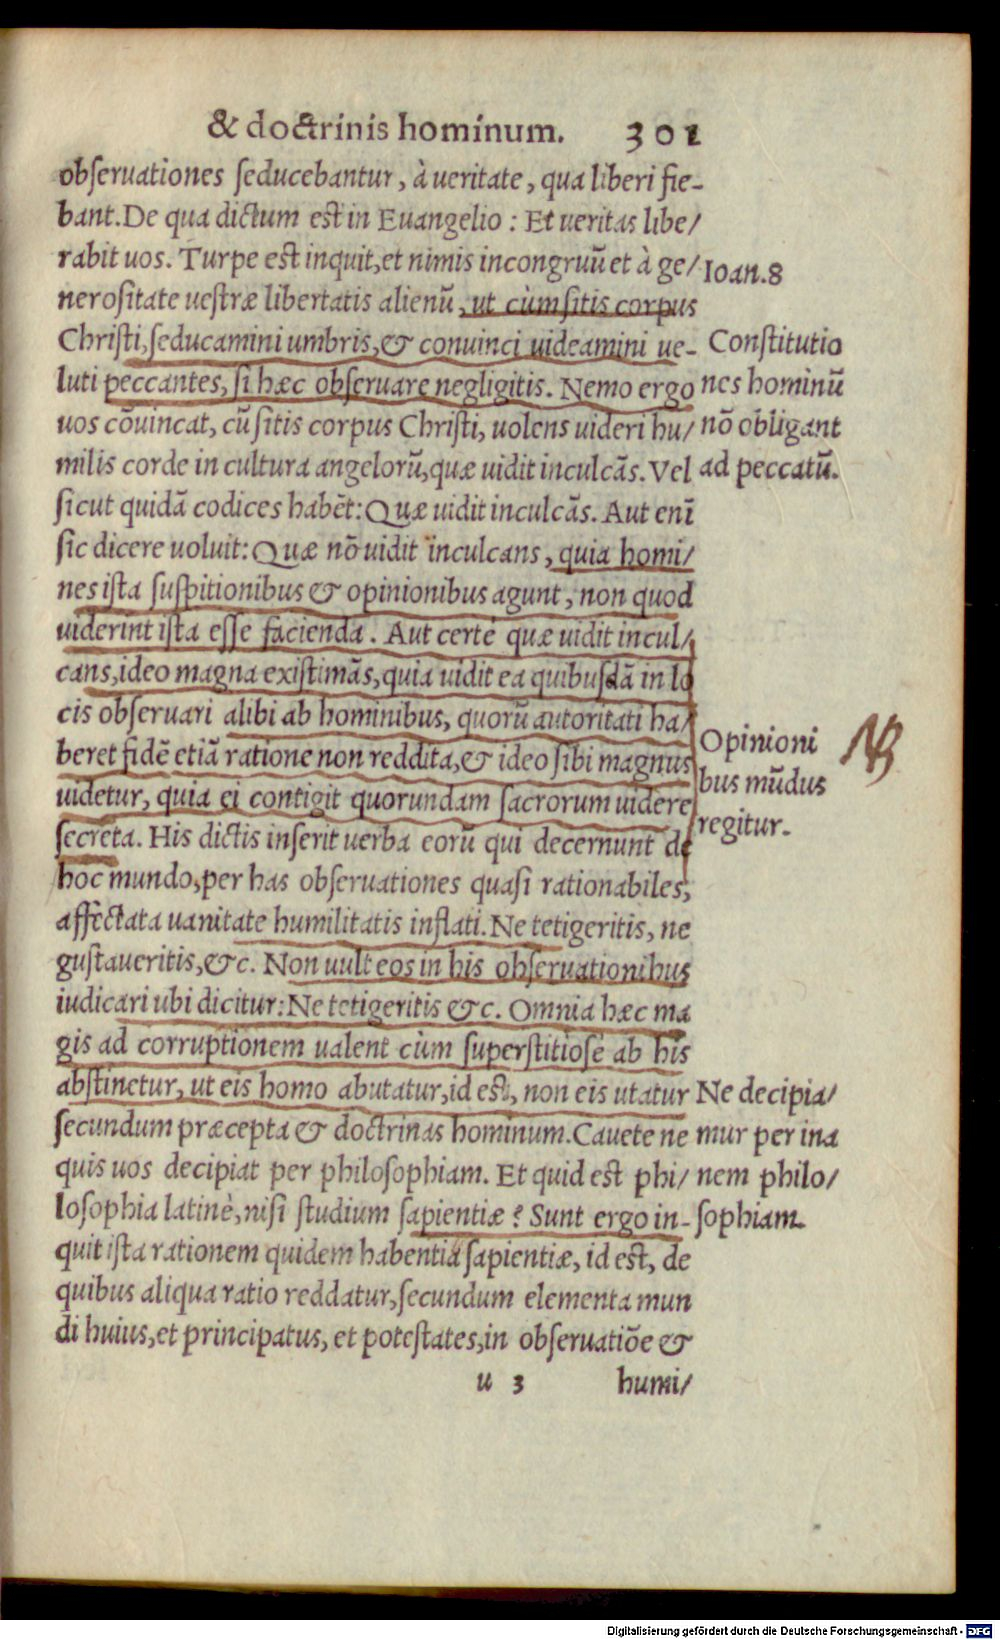 & doctrinis hominum. 301
obſeruationes ſeducebantur, à ueritate, qua liberi fie-
bant. De qua dictum est in Euangelio: Et ueritas libe/
rabit uos. Turpe est inquit, et nimis incongruũ et à ge/
neroſitate ueſtræ libertatis alienũ, ut cùm ſitis corpus
Chriſti, ſeducamini umbris, & conuinci uideamini ue-
luti peccantes, ſi hæc obſeruare negligitis. Nemo ergo
uos cõuincat, cũ ſitis corpus Chriſti, uolens uideri hu/
milis corde in cultura angelorũ, quæ uidit inculcãs. Vel
ſicut quidã codices habẽt: Quæ uidit inculcãs. Aut enĩ
ſic dicere uoluit: Quæ nõ uidit inculcans, quia homi/
nes iſta ſuſpitionibus & opinionibus agunt, non quod
uiderint iſta eſſe facienda. Aut certè quæ uidit incul/
cans, ideo magna exiſtimãs, quia uidit ea quibuſdã in lo
cis obſeruari alibi ab hominibus, quorũ autoritati ha/
beret fidẽ etiã ratione non reddita, & ideo ſibi magnus
uidetur, quia ei contigit quorundam ſacrorum uidere
ſecreta. His dictis inſerit uerba eorũ qui decernunt de
hoc mundo, per has obſeruationes quaſi rationabiles,
affectata uanitate humilitatis inflati. Ne tetigeritis, ne
guſtaueritis, &c. Non uult eos in his obſeruationibus
iudicari ubi dicitur: Ne tetigeritis &c. Omnia hæc ma
gis ad corruptionem ualent cùm ſuperſtitioſè ab his
abſtinetur, ut eis homo abutatur, id est, non eis utatur
ſecundum præcepta & doctrinas hominum. Cauete ne
quis uos decipiat per philoſophiam. Et quid est phi/
loſophia latinè, niſi ſtudium ſapientiæ? Sunt ergo in-
quit iſta rationem quidem habentia ſapientiæ, id est, de
quibus aliqua ratio reddatur, ſecundum elementa mun
di huius, et principatus, et poteſtates, in obſeruatiõe &
u 3 humi/
Ioan. 8
Conſtitutio
nes hominũ
nõ obligant
ad peccatũ.
Opinioni
bus mũdus
regitur.
NB
Ne decipia/
mur per ina
nem philo/
ſophiam.
Digitalisierung gefördert durch die Deutsche Forschungsgemeinschaft - DFG